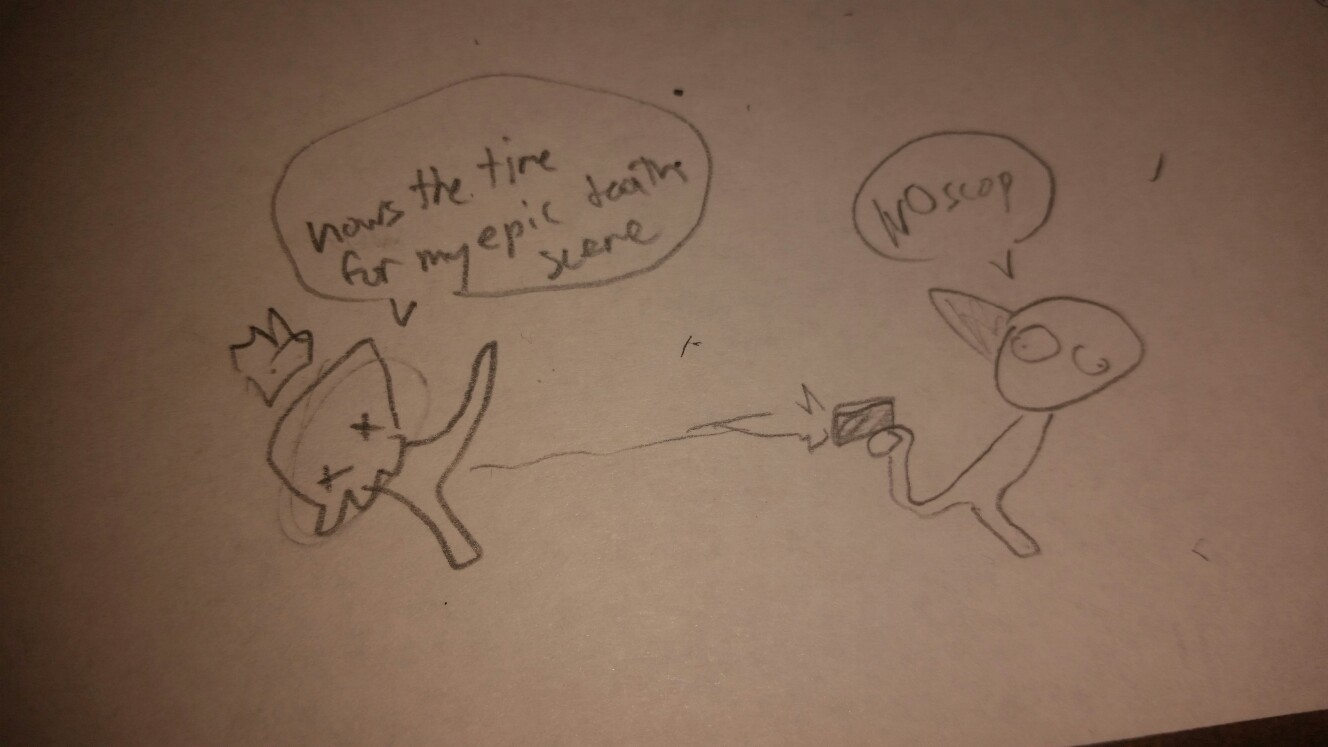 nows the time
for my epic death
scene
NOscop